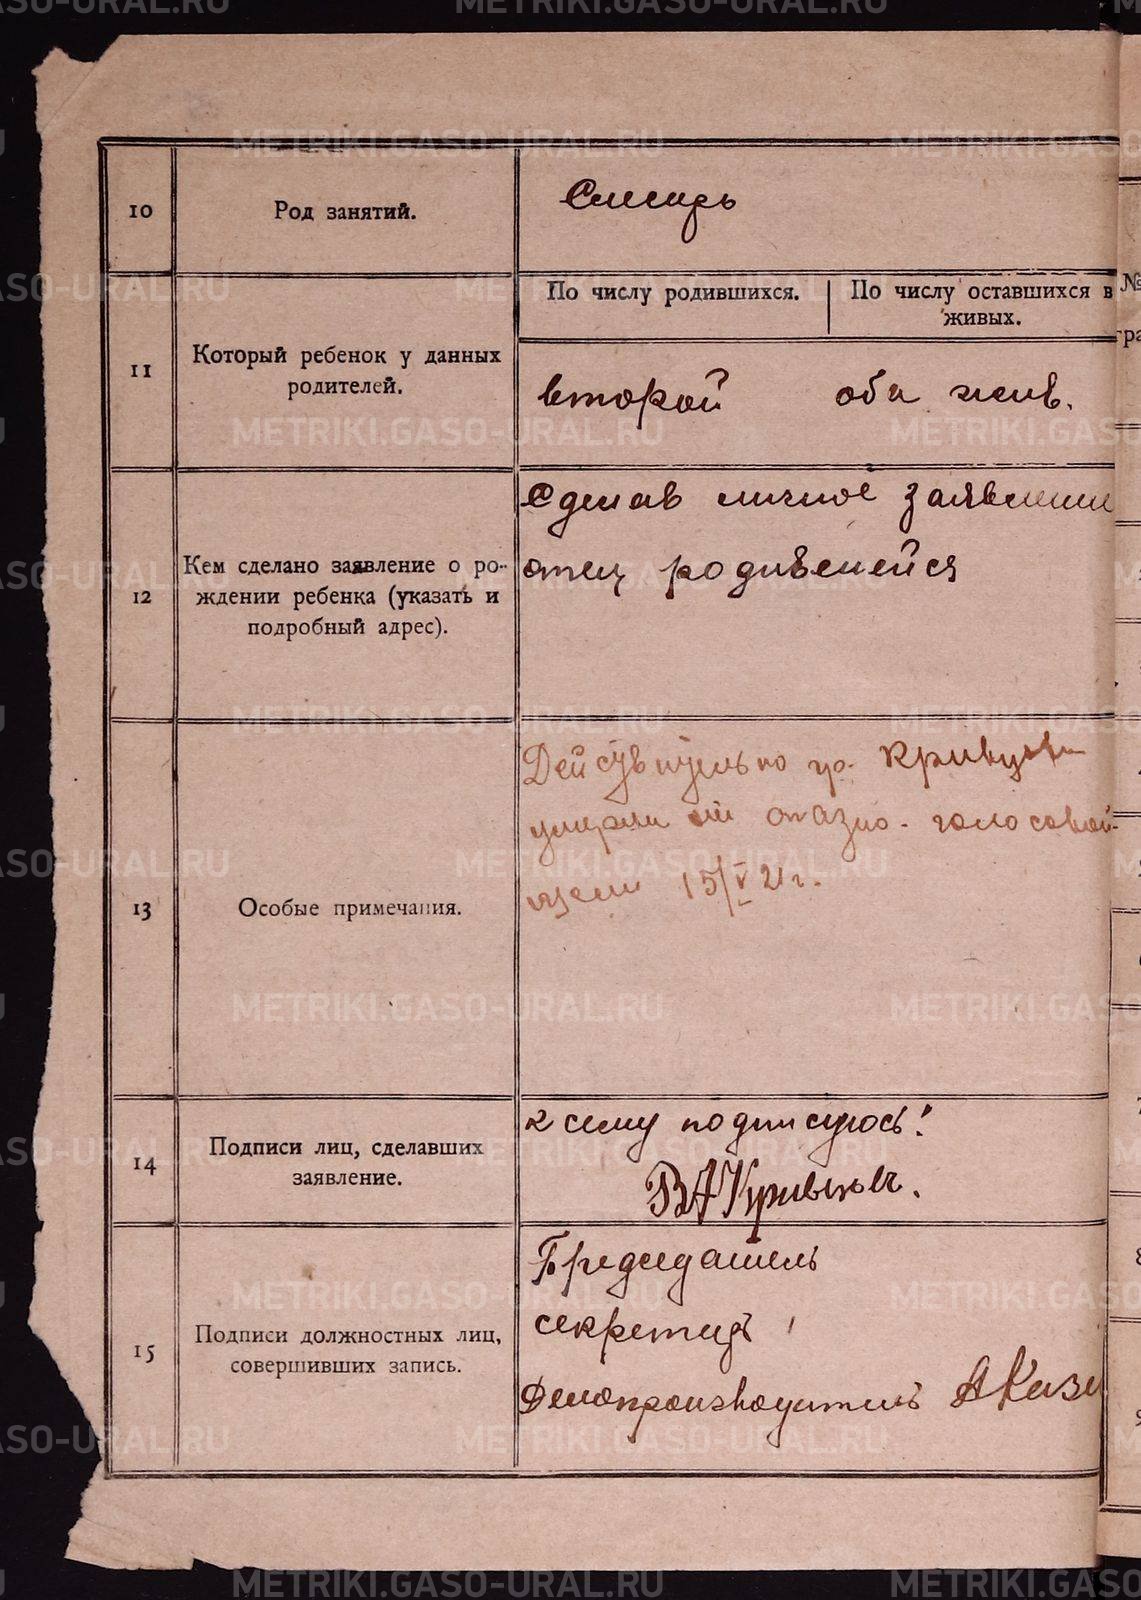 10
Род занятий.
Слесарь
11
Который ребенок у данных
родителей.
По числу родившихся.
По числу оставшихся в
живых.
второй
оба жив.
12
Кем сделано заявление о ро-
ждении ребенка (указать и
подробный адрес).
Сделав личное заявление
отец родившейся
13
Особые примечания.
гр.
голосовой
15/V 21 г.
14
Подписи лиц, сделавших
заявление.
к сему подписуюсь!
15
Подписи должностных лиц,
совершивших запись.
Председатель
секретарь
Делопроизводитель
№
METRIKI.GASO-URAL.RU